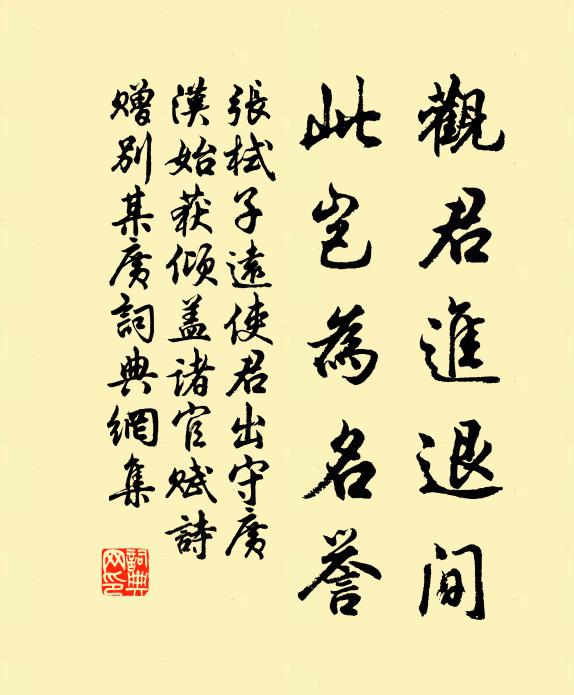 觀君進退間
此豈為名譽
張栻子遠使君出守廣
漢始获傾盖諸官赋詩
赠别某廣詞典網集
詞典網印